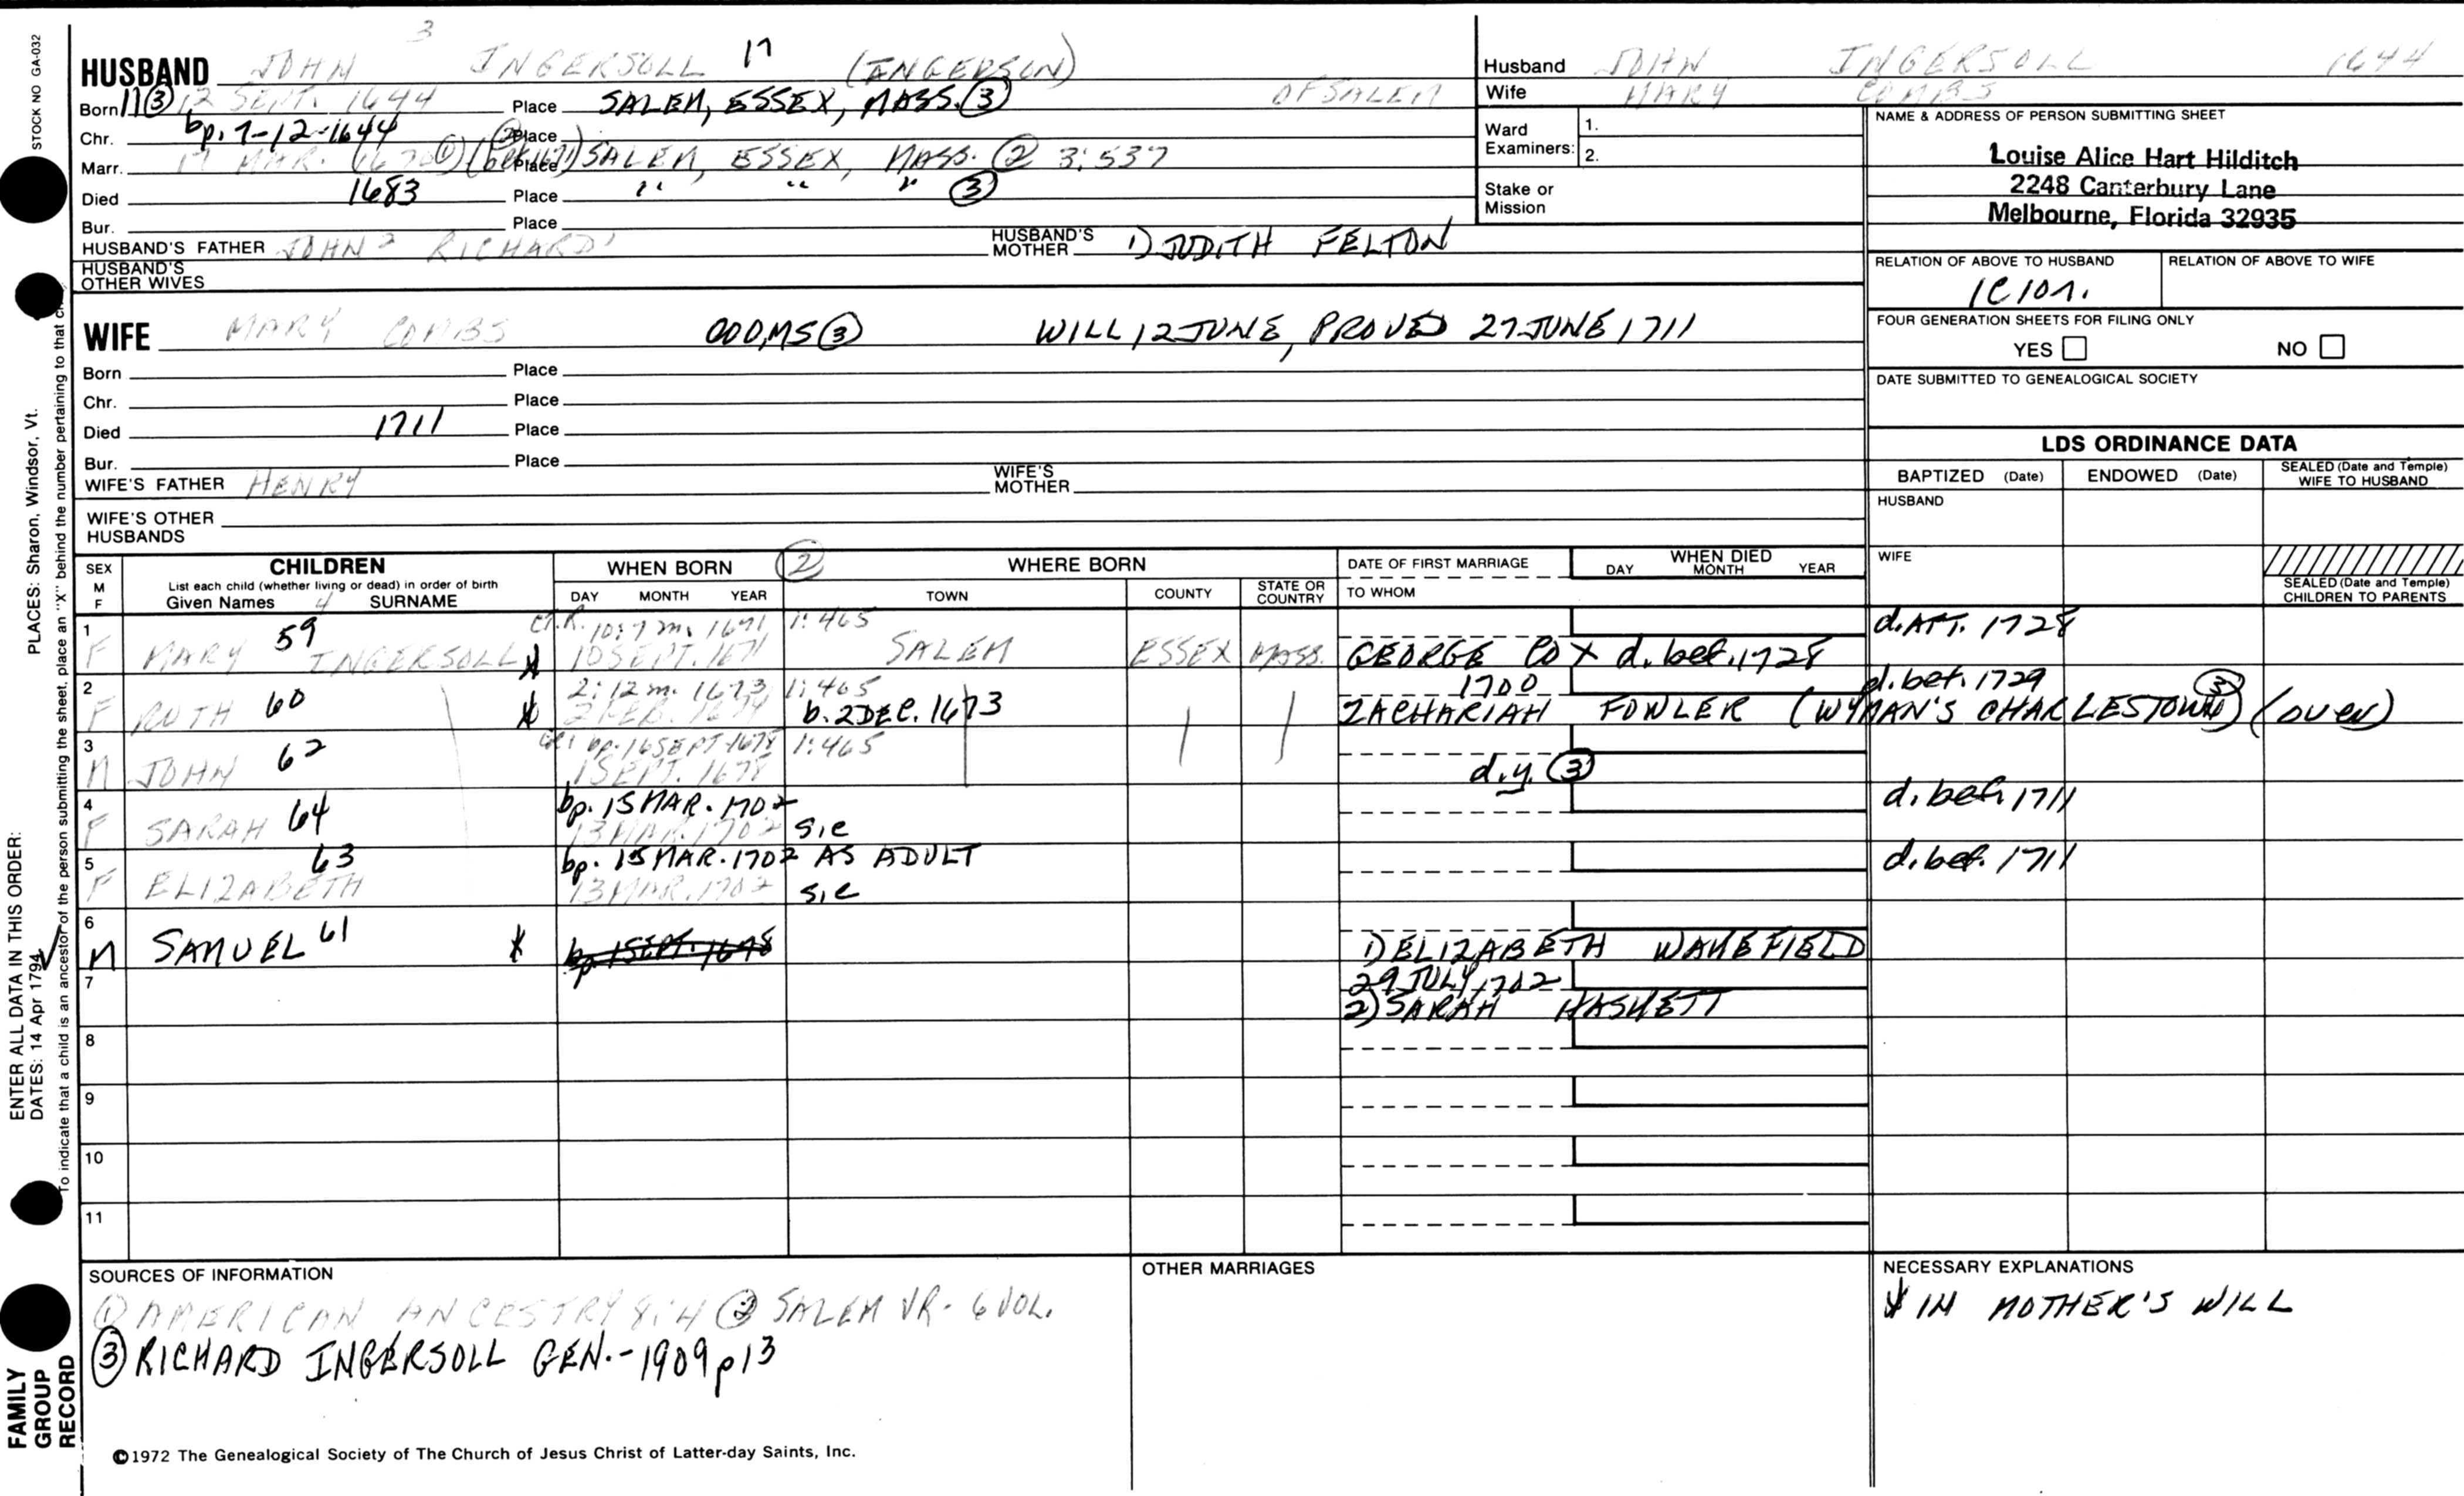 STOCK NO GA-032
3
HUSBAND JOHN INGERSOLL 17 (INGERSON)
Born 11 (3) 12 SEPT. 1644 Place SALEM, ESSEX, MASS. (3) OF SALEM
Chr. bp. 7-12-1644 (2) Place
Marr. 17 MAR. 1670 (1) Place SALEM, ESSEX, MASS. (2) 3:537
Died 1683 Place " " " (3)
Bur. Place
HUSBAND'S FATHER JOHN 2 RICHARD 1 HUSBAND'S MOTHER 1) JUDITH FELTON
HUSBAND'S OTHER WIVES
Husband JOHN INGERSOLL 1644
Wife MARY COMBS
Ward Examiners: 1.
2.
Stake or Mission
NAME & ADDRESS OF PERSON SUBMITTING SHEET
Louise Alice Hart Hilditch
2248 Canterbury Lane
Melbourne, Florida 32935
RELATION OF ABOVE TO HUSBAND RELATION OF ABOVE TO WIFE
1C10r.
FOUR GENERATION SHEETS FOR FILING ONLY
YES NO
DATE SUBMITTED TO GENEALOGICAL SOCIETY
WIFE MARY COMBS (3) WILL 12 JUNE, PROVED 27 JUNE 1711
Born Place
Chr. Place
Died 1711 Place
Bur. Place
WIFE'S FATHER HENRY WIFE'S MOTHER
WIFE'S OTHER HUSBANDS
LDS ORDINANCE DATA
BAPTIZED (Date) ENDOWED (Date) SEALED (Date and Temple) WIFE TO HUSBAND
HUSBAND
WIFE
SEALED (Date and Temple) CHILDREN TO PARENTS
SEX M F
CHILDREN
List each child (whether living or dead) in order of birth
Given Names 4 SURNAME
WHEN BORN (2) WHERE BORN
DAY MONTH YEAR TOWN COUNTY STATE OR COUNTRY
DATE OF FIRST MARRIAGE
TO WHOM
WHEN DIED
DAY MONTH YEAR
1 59 CT.R. 10:7 m. 1671 1:465 d. AFT. 1728
F MARY INGERSOLL 10 SEPT. 1671 SALEM ESSEX MASS. GEORGE COX d. bef. 1728
2 60 2:12 m. 1673 1:465 1700 d. bef. 1729
F RUTH 2 FEB. 1674 b. 2 DEC. 1673 ZACHARIAH FOWLER (WYMAN'S CHARLESTOWN) (3) (over)
3 62 bp. 16 SEPT 1678 1:465
M JOHN 1 SEPT. 1678 d.y. (3)
4 64 bp. 15 MAR. 1702 d. bef. 1711
F SARAH 13 MAR. 1702 sic
5 63 bp. 15 MAR. 1702 AS ADULT d. bef. 1711
F ELIZABETH 13 MAR. 1702 sic
6 61
M SAMUEL bp. 1 SEPT. 1678 1) ELIZABETH WAKEFIELD
7 29 JULY, 1702
2) SARAH HASKETT
8
9
10
11
SOURCES OF INFORMATION
(1) AMERICAN ANCESTRY 8:4 (2) SALEM VR - 6 VOL.
(3) RICHARD INGERSOLL GEN. - 1909 p 13
OTHER MARRIAGES
NECESSARY EXPLANATIONS
IN MOTHER'S WILL
©1972 The Genealogical Society of The Church of Jesus Christ of Latter-day Saints, Inc.
FAMILY GROUP RECORD
ENTER ALL DATA IN THIS ORDER:
DATES: 14 Apr 1794
PLACES: Sharon, Windsor, Vt.
To indicate that a child is an ancestor of the person submitting the sheet, place an "X" behind the number pertaining to that